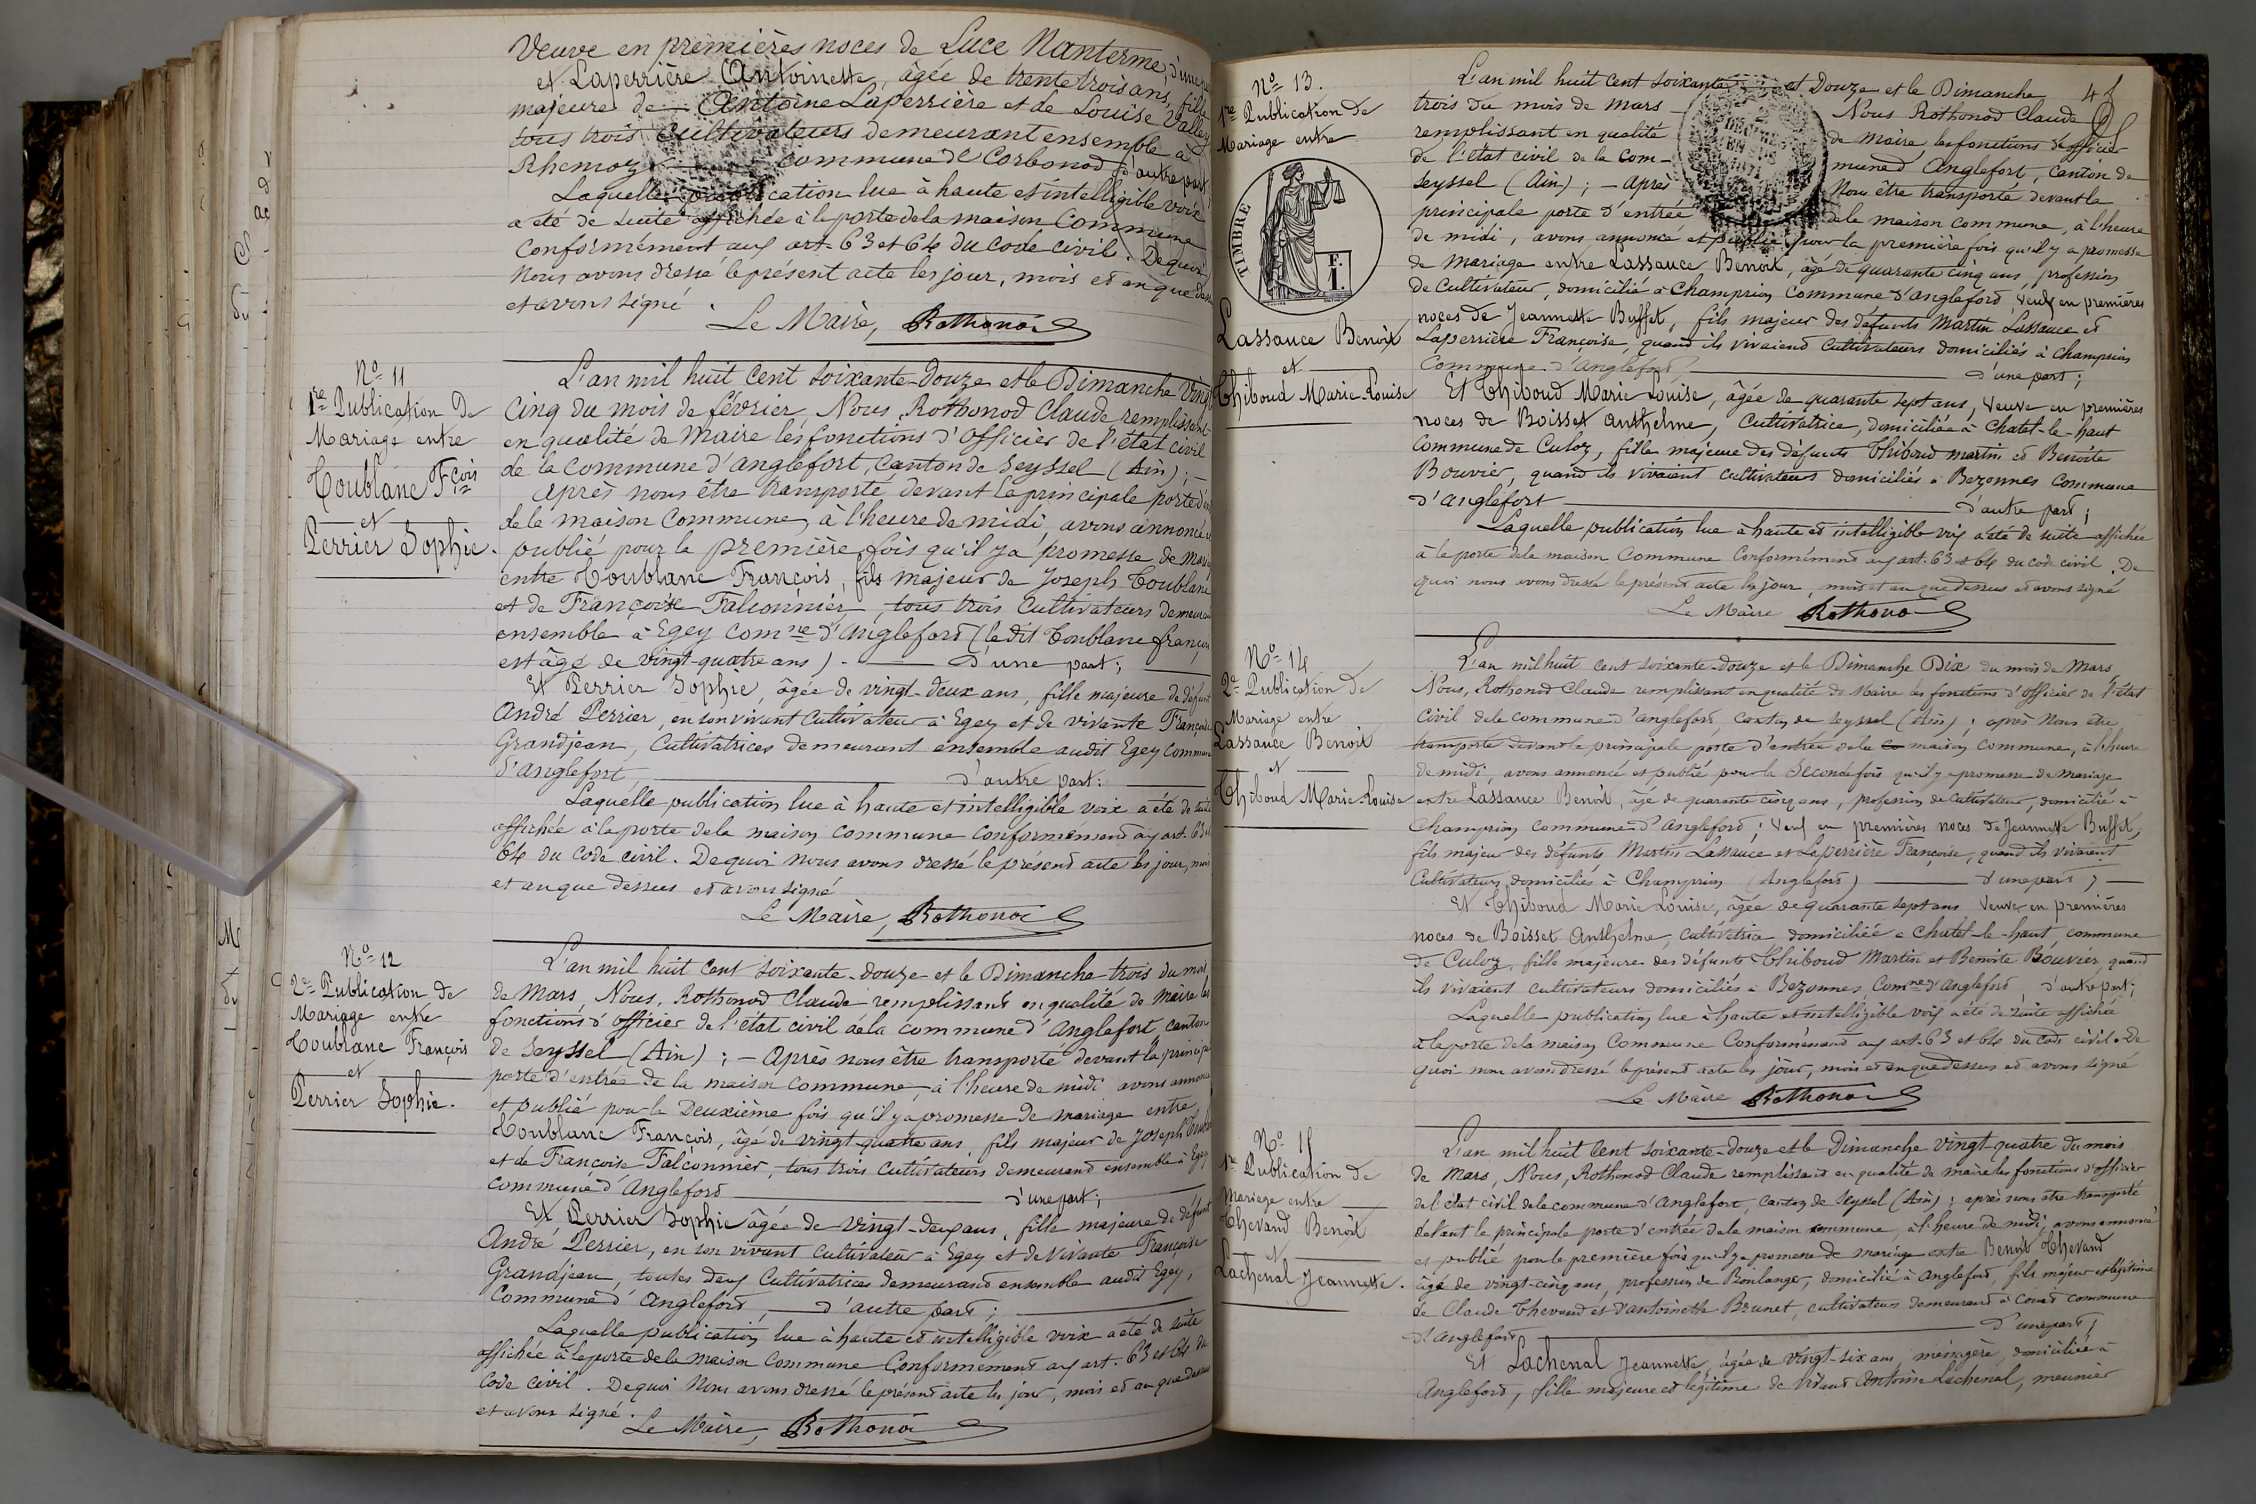 Veuve en premières noces de Luce Nanterme, d'une part
et Laperrière Antoinette, âgée de trente trois ans, fille
majeure de Antoine Laperrière et de Louise Vallet
tous trois cultivateurs demeurant ensemble à
Rhemoz commune de Corbonod d'autre part
Laquelle publication lue à haute et intelligible voix
a été de suite affichée à la porte de la maison Commune
Conformément aux art. 63 et 64 du Code civil. De quoi
Nous avons dressé le présent acte les jour, mois et an que dessus
et avons signé.
Le Maire, Rothonod
No 11
1re Publication de
Mariage entre
Toublanc Fçois
et
Perrier Sophie.
L'an mil huit cent soixante-douze et le Dimanche vingt
cinq du mois de février, Nous, Rothonod Claude remplissant
en qualité de Maire les fonctions d'officier de l'état civil
de la Commune d'Anglefort, Canton de Seyssel (Ain); —
Après nous être transporté devant la principale porte d'entrée
de la maison commune, à l'heure de midi, avons annoncé et
publié pour la première fois qu'il y a promesse de mariage
entre Toublanc François, fils majeur de Joseph Toublanc
et de Françoise Falconnier, tous trois Cultivateurs demeurant
ensemble à Egey comne d'Anglefort (le dit Toublanc françois
est âgé de vingt-quatre ans). — d'une part;
Et Perrier Sophie, âgée de vingt-deux ans, fille majeure de défunt
André Perrier, en son vivant Cultivateur à Egey et de vivante Françoise
Grandjean, Cultivatrices demeurant ensemble audit Egey commune
d'Anglefort, — d'autre part:
Laquelle publication lue à haute et intelligible voix a été de suite
affichée à la porte de la maison commune conformément aux art. 63 et
64 du Code civil. De quoi nous avons dressé le présent acte les jour, mois
et an que dessus et avons signé
Le Maire, Rothonod
No 12
2e Publication de
Mariage entre
Toublanc François
et
Perrier Sophie.
L'an mil huit cent soixante-douze et le Dimanche trois du mois
de Mars, Nous, Rothonod Claude remplissant en qualité de maire les
fonctions d'officier de l'état civil de la commune d'Anglefort, canton
de Seyssel (Ain); — Après nous être transporté devant la principale
porte d'entrée de la maison commune, à l'heure de midi avons annoncé
et publié pour la Deuxième fois qu'il y a promesse de mariage entre
Toublanc François, âgé de vingt-quatre ans, fils majeur de Joseph Toublanc
et de Françoise Falconnier, tous trois cultivateurs demeurant ensemble à Egey
commune d'Anglefort — d'une part;
Et Perrier Sophie âgée de vingt-deux ans, fille majeure de défunt
André Perrier, en son vivant cultivateur à Egey et de vivante Françoise
Grandjean, toutes deux Cultivatrices demeurant ensemble audit Egey,
Commune d'Anglefort, — d'autre part;
Laquelle publication lue à haute et intelligible voix a été de suite
affichée à la porte de la maison Commune Conformément aux art. 63 et 64 du
Code civil. De quoi nous avons dressé le présent acte les jour, mois et an que dessus
et avons signé.
Le Maire, Rothonod
No 13.
1re Publication de
Mariage entre
TIMBRE
F.
I.
Lassauce Benoit
et
Thiboud Marie-Louise
L'an mil huit cent soixante et Douze et le Dimanche
trois du mois de Mars Nous Rothonod Claude
remplissant en qualité de Maire les fonctions d'officier
de l'état civil de la commune d'Anglefort, Canton de
Seyssel (Ain); — Après Nous être transporté devant la
principale porte d'entrée de la maison commune, à l'heure
de midi, avons annoncé et publié pour la première fois qu'il y a promesse
de mariage entre Lassauce Benoit, âgé de quarante cinq ans, profession
de Cultivateur, domicilié à Champrion commune d'Anglefort, veuf en premières
noces de Jeannette Buffet, fils majeur des défunts Martin Lassauce et
Laperrière Françoise, quand ils vivaient Cultivateurs domiciliés à Champrion
Commune d'Anglefort, — d'une part;
Et Thiboud Marie Louise, âgée de quarante sept ans, veuve en premières
noces de Boisset Anthelme, Cultivatrice, domiciliée à Chatel-le-haut
Commune de Culoz, fille majeure des défunts Thiboud Martin et Benoîte
Bouvier, quand ils vivaient cultivateurs domiciliés à Bezonnes Commune
d'Anglefort — d'autre part;
Laquelle publication lue à haute et intelligible voix a été de suite affichée
à la porte de la maison Commune Conformément aux art. 63 et 64 du code civil. De
quoi nous avons dressé le présent acte les jour, mois et an que dessus et avons signé
Le Maire Rothonod
No 14
2e Publication de
Mariage entre
Lassauce Benoit
et
Thiboud Marie-Louise
L'an mil huit cent soixante-douze et le Dimanche Dix du mois de Mars,
Nous, Rothonod Claude remplissant en qualité de Maire les fonctions d'officier de l'état
civil de la commune d'Anglefort, canton de Seyssel (Ain); après Nous être
transporté devant la principale porte d'entrée de la co maison commune, à l'heure
de midi, avons annoncé et publié pour la Seconde fois qu'il y a promesse de mariage
entre Lassauce Benoit, âgé de quarante cinq ans, profession de Cultivateur, domicilié à
Champrion commune d'Anglefort; veuf en premières noces de Jeannette Buffet,
fils majeur des défunts Martin Lassauce et Laperrière Françoise, quand ils vivaient
Cultivateurs domiciliés à Champrion (Anglefort) — d'une part; —
Et Thiboud Marie Louise, âgée de quarante sept ans Veuve en premières
noces de Boisset Anthelme, Cultivatrice domiciliée à Chatel-le-haut, commune
de Culoz, fille majeure des défunts Thiboud Martin et Benoite Bouvier, quand
ils vivaient cultivateurs domiciliés à Bezonnes Comne d'Anglefort, d'autre part;
Laquelle publication lue à haute et intelligible voix a été de suite affichée
à la porte de la maison Commune Conformément aux art. 63 et 64 du Code civil. De
quoi nous avons dressé le présent acte les jour, mois et an que dessus et avons signé
Le Maire Rothonod
No 15
1re Publication de
Mariage entre
Thevand Benoit
et
Lachenal Jeannette.
L'an mil huit cent soixante-douze et le Dimanche vingt-quatre du mois
de Mars, Nous, Rothonod Claude remplissant en qualité de maire les fonctions d'officier
de l'état civil de la commune d'Anglefort, canton de Seyssel (Ain); après nous être transporté
devant la principale porte d'entrée de la maison commune, à l'heure de midi, avons annoncé
et publié pour la première fois qu'il y a promesse de mariage entre Benoit Thevand
âgé de vingt-cinq ans, profession de Boulanger, domicilié à Anglefort, fils majeur et légitime
de Claude Thevand et d'Antoinette Brunet, cultivateurs demeurant à commune
d'Anglefort — d'une part;
Et Lachenal Jeannette, âgée de vingt-six ans, ménagère, domiciliée à
Anglefort, fille majeure et légitime de vivant Antoine Lachenal, meunier